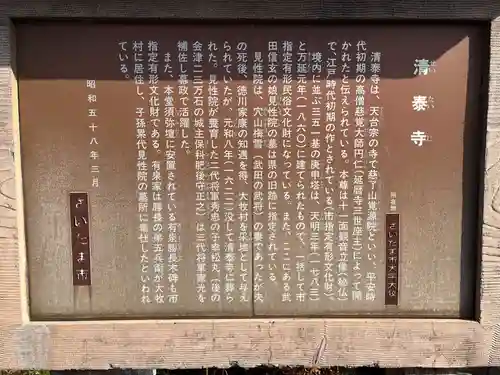 清泰寺
所在地 さいたま市大字大牧
清泰寺は、天台宗の寺で慈了山覚源院といい、平安時
代初期の高僧慈覚大師円仁(延暦寺三世座主)によって開
かれたと伝えられている。本尊は十一面観音立像(秘仏)
で、江戸時代初期の作とされている(市指定有形文化財)。
境内に並ぶ三五一基の庚申塔は、天明三年(一七八三)
と万延元年(一八六〇)に建てられたもので、一括して市
指定有形民俗文化財になっている。また、ここにある武
田信玄の娘見性院の墓は県の旧跡に指定されている。
見性院は、穴山梅雪(武田の武将)の妻であったが夫
の死後、徳川家康の知遇を得、大牧村を采地として与え
られていたが、元和八年(一六二二)没して清泰寺に葬ら
れた。見性院が養育した二代将軍秀忠の子幸松丸(後の
会津二三万石の城主保科肥後守正之)は三代将軍家光を
補佐し幕政で活躍した。
また、本堂須弥壇に安置されている有泉勝長木碑も市
指定有形文化財である。有泉家は勝長の第五兵衛が大牧
村に居住し、子孫累代見性院の墓所に奉仕したといわれ
ている。
昭和五十八年三月
さいたま市